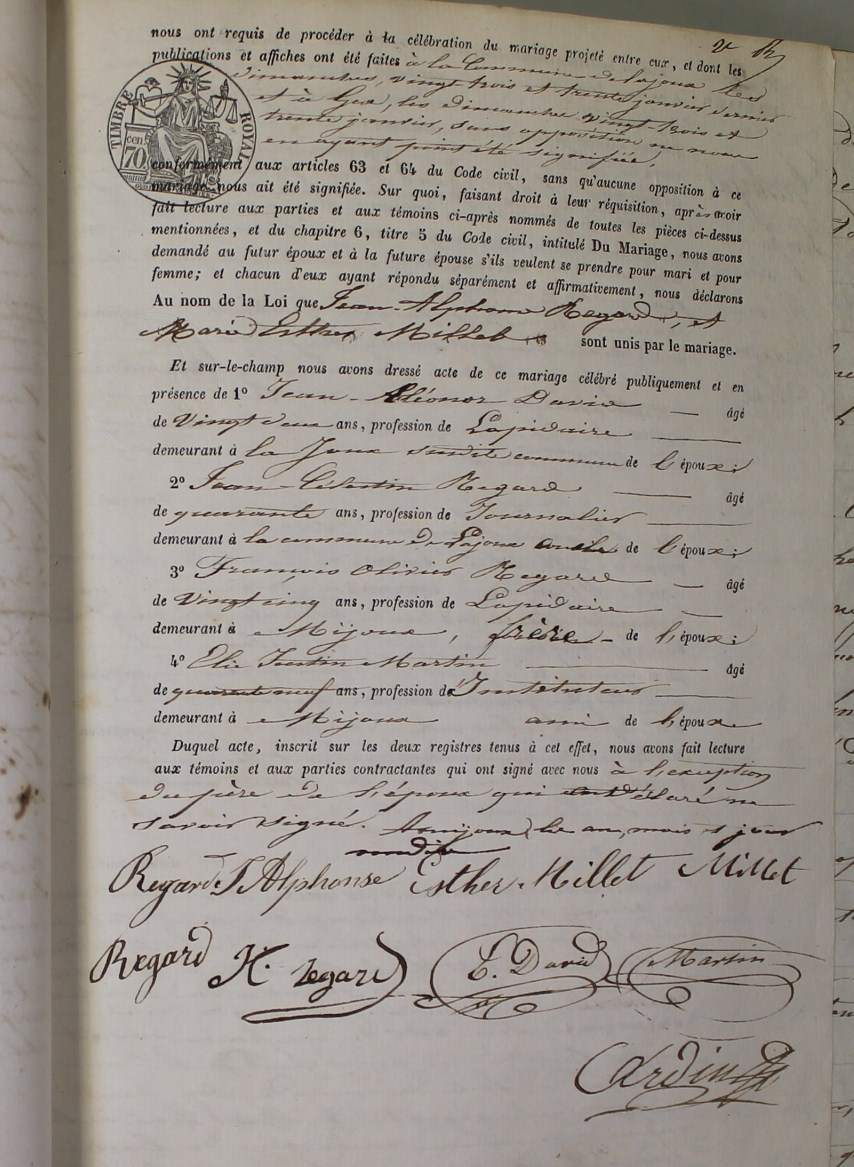 nous ont requis de procéder à la célébration du mariage projeté entre eux, et dont les
publications et affiches ont été faites à la Commune de Lajoux les
dimanches, vingt trois et trente janvier dernier
et à Gex, les dimanches vingt-trois et
trente janvier, sans opposition ne nous
en ayant point été signifiée.
TIMBRE ROYAL
cen 70
conformément aux articles 63 et 64 du Code civil, sans qu'aucune opposition à ce
mariage nous ait été signifiée. Sur quoi, faisant droit à leur réquisition, après avoir
fait lecture aux parties et aux témoins ci-après nommés de toutes les pièces ci-dessus
mentionnées, et du chapitre 6, titre 5 du Code civil, intitulé Du Mariage, nous avons
demandé au futur époux et à la future épouse s'ils veulent se prendre pour mari et pour
femme; et chacun d'eux ayant répondu séparément et affirmativement, nous déclarons
Au nom de la Loi que Jean-Alphonse Regard, et
Marie Esther Millet sont unis par le mariage.
Et sur-le-champ nous avons dressé acte de ce mariage célébré publiquement et en
présence de 1º Jean-Eléonor David — âgé
de vingt deux ans, profession de Lapidaire —
demeurant à la Joux susdite commune de l'époux;
2º Jean-Célestin Regard — âgé
de quarante ans, profession de Journalier —
demeurant à la commune de Lajoux oncle de l'époux;
3º François Olivier Regard — âgé
de vingt cinq ans, profession de Lapidaire —
demeurant à Mijoux, frère - de l'époux;
4º Elie Justin Martin — âgé
de quarante neuf ans, profession de Instituteur —
demeurant à Mijoux ami de l'époux
Duquel acte, inscrit sur les deux registres tenus à cet effet, nous avons fait lecture
aux témoins et aux parties contractantes qui ont signé avec nous à l'exception
du père de l'époux qui a déclaré ne
savoir signé. A mijoux, les an, mois et jour
susdits
Regard J. Alphonse Esther Millet Millet
Regard H. regard E. David Martin